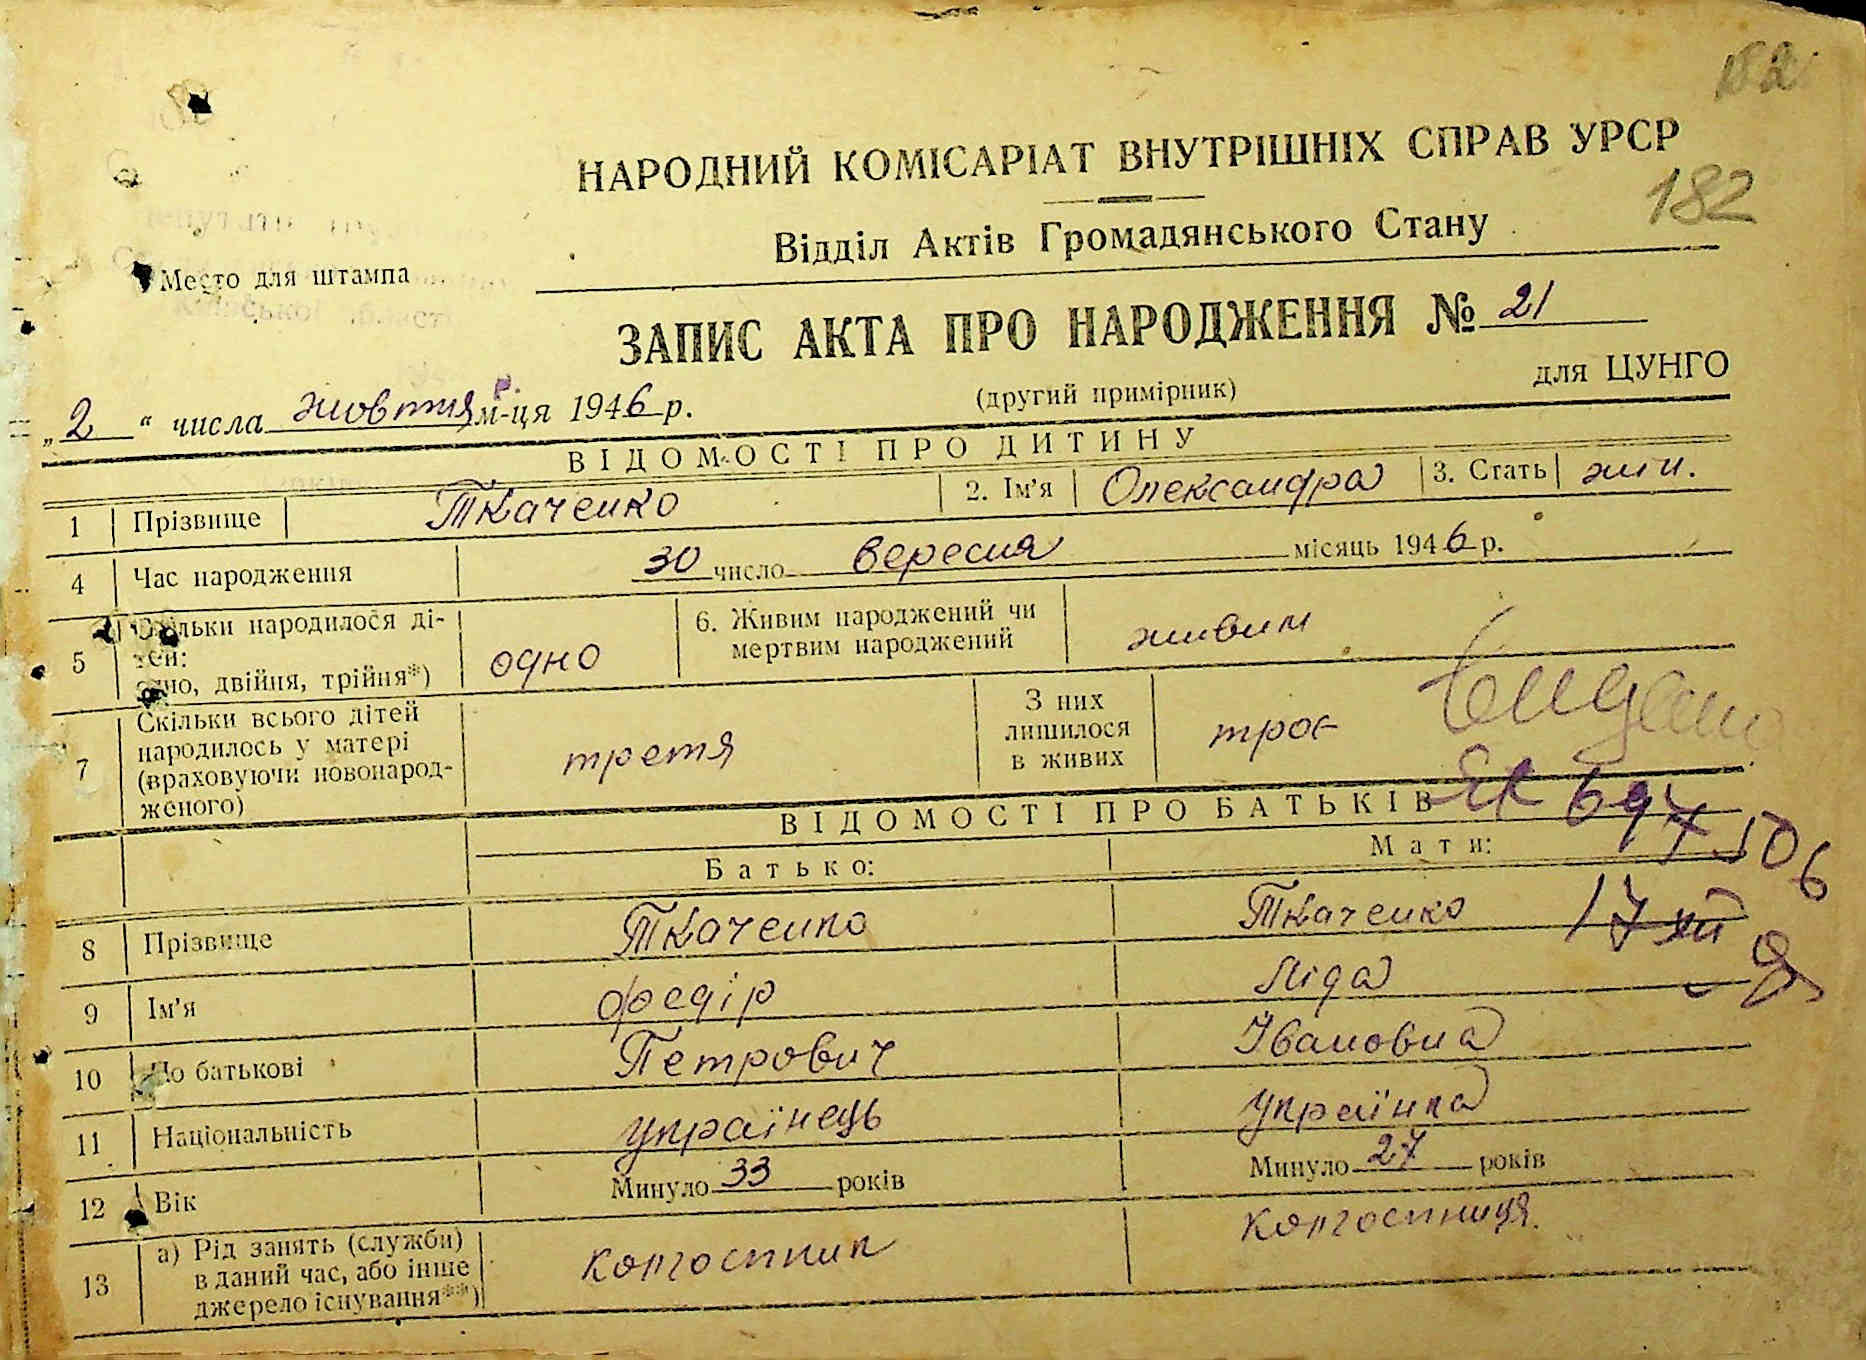 182
НАРОДНИЙ КОМІСАРІАТ ВНУТРІШНІХ СПРАВ УРСР
182
Відділ Актів Громадянського Стану
Место для штампа
Київської області
ЗАПИС АКТА ПРО НАРОДЖЕННЯ № 21
(другий примірник) для ЦУНГО
„2“ числа жовтня м-ця 1946 р.
ВІДОМОСТІ ПРО ДИТИНУ
1 Прізвище Ткаченко 2. Ім'я Олександра 3. Стать жін.
4 Час народження 30 число вересня місяць 1946 р.
5 Скільки народилося ді-
тей:
одно, двійня, трійня*) одно
6. Живим народжений чи
мертвим народжений живим
7 Скільки всього дітей
народилось у матері
(враховуючи новонарод-
женого) третя
З них
лишилося
в живих троє
ВІДОМОСТІ ПРО БАТЬКІВ
697506
Батько: Мати:
8 Прізвище Ткаченко Ткаченко
17 XII
9 Ім'я Федір Ліда
10 По батькові Петрович Івановна
11 Національність українець українка
12 Вік Минуло 33 років Минуло 27 років
13 а) Рід занять (служби)
в даний час, або інше
джерело існування**) колгоспник колгоспниця.